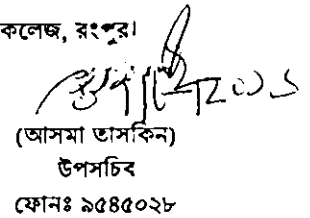 কলেজ, রংপুর।
(আসমা তাসকিন)
উপসচিব
ফোনঃ ৯৫৪৫০২৮